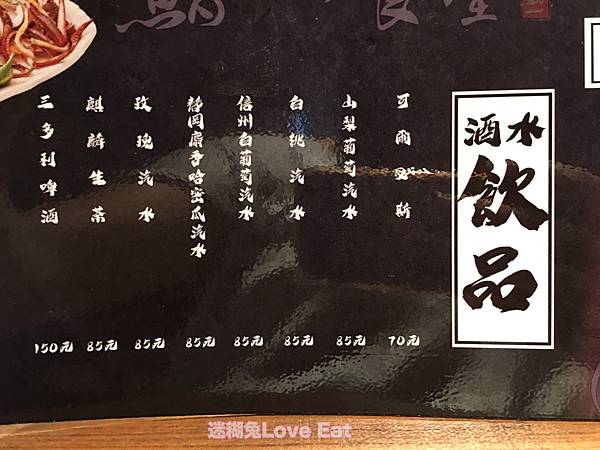 酒水
飲品
可爾必斯
70元
山梨葡萄汽水
85元
白桃汽水
85元
信州白葡萄汽水
85元
靜岡麝香哈密瓜汽水
85元
玫瑰汽水
85元
麒麟生茶
85元
三多利啤酒
150元
迷糊兔Love Eat